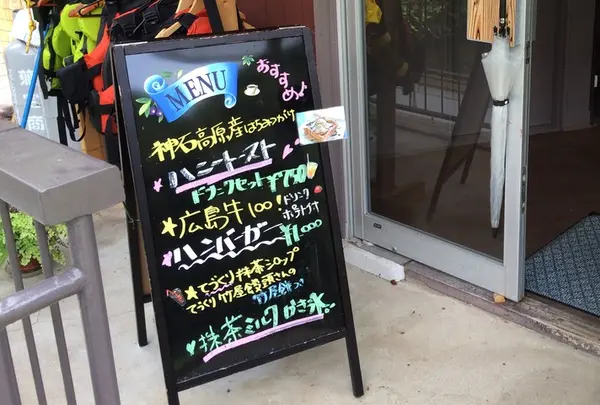 MENU
おすすめ♪
神石高原産はちみつがけ
ハニートースト
ドリンクセット ¥750
★広島牛100!
ハンバーガー ¥1000
★てづくり抹茶シロップ
てづくり竹屋饅頭さんの
抹茶ミルクかき氷。